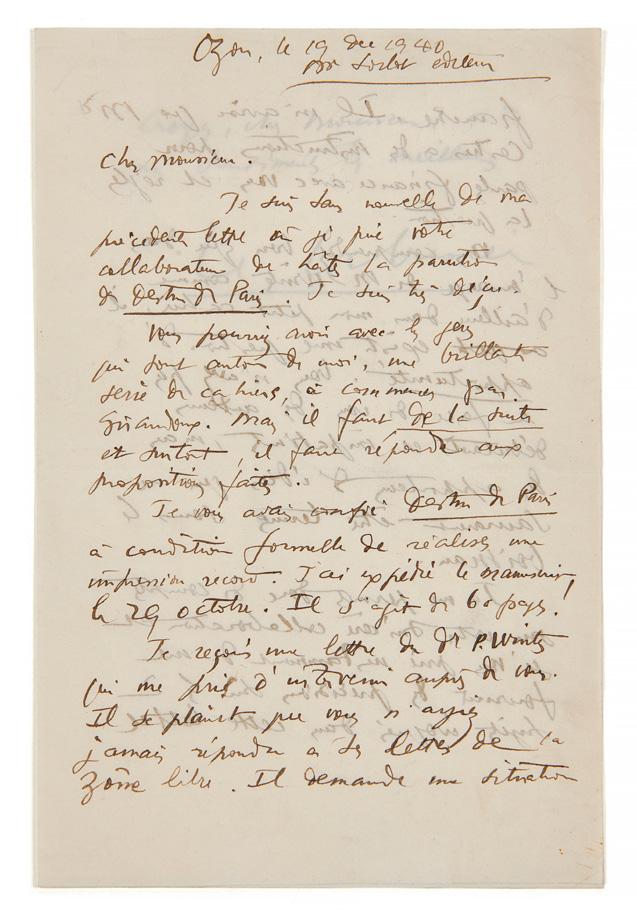 Ozon, le 19 dec 1940
pr Sorlot editeur
Cher Monsieur.
Je suis sans nouvelle de ma
précédente lettre où je priai votre
collaborateur de hâter la parution
de Destin de Paris. Je suis très déçu.
Vous pourriez avoir avec les gens
qui sont autour de moi, une brillante
serie de cahiers, à commencer par
Giraudoux. Mais il faut de la suite
et surtout, il faut répondre aux
propositions faites.
Je vous avais confié Destin de Paris
à condition formelle de réaliser une
impression record. J'ai expédié le manuscrit
le 29 octobre. Il s'agit de 60 pages!
Je reçois une lettre du Dr P. Winter
qui me prie d'intervenir auprès de vous.
Il se plaint que vous n'ayez
jamais répondu a ses lettres de la
zône libre. Il demande une situation